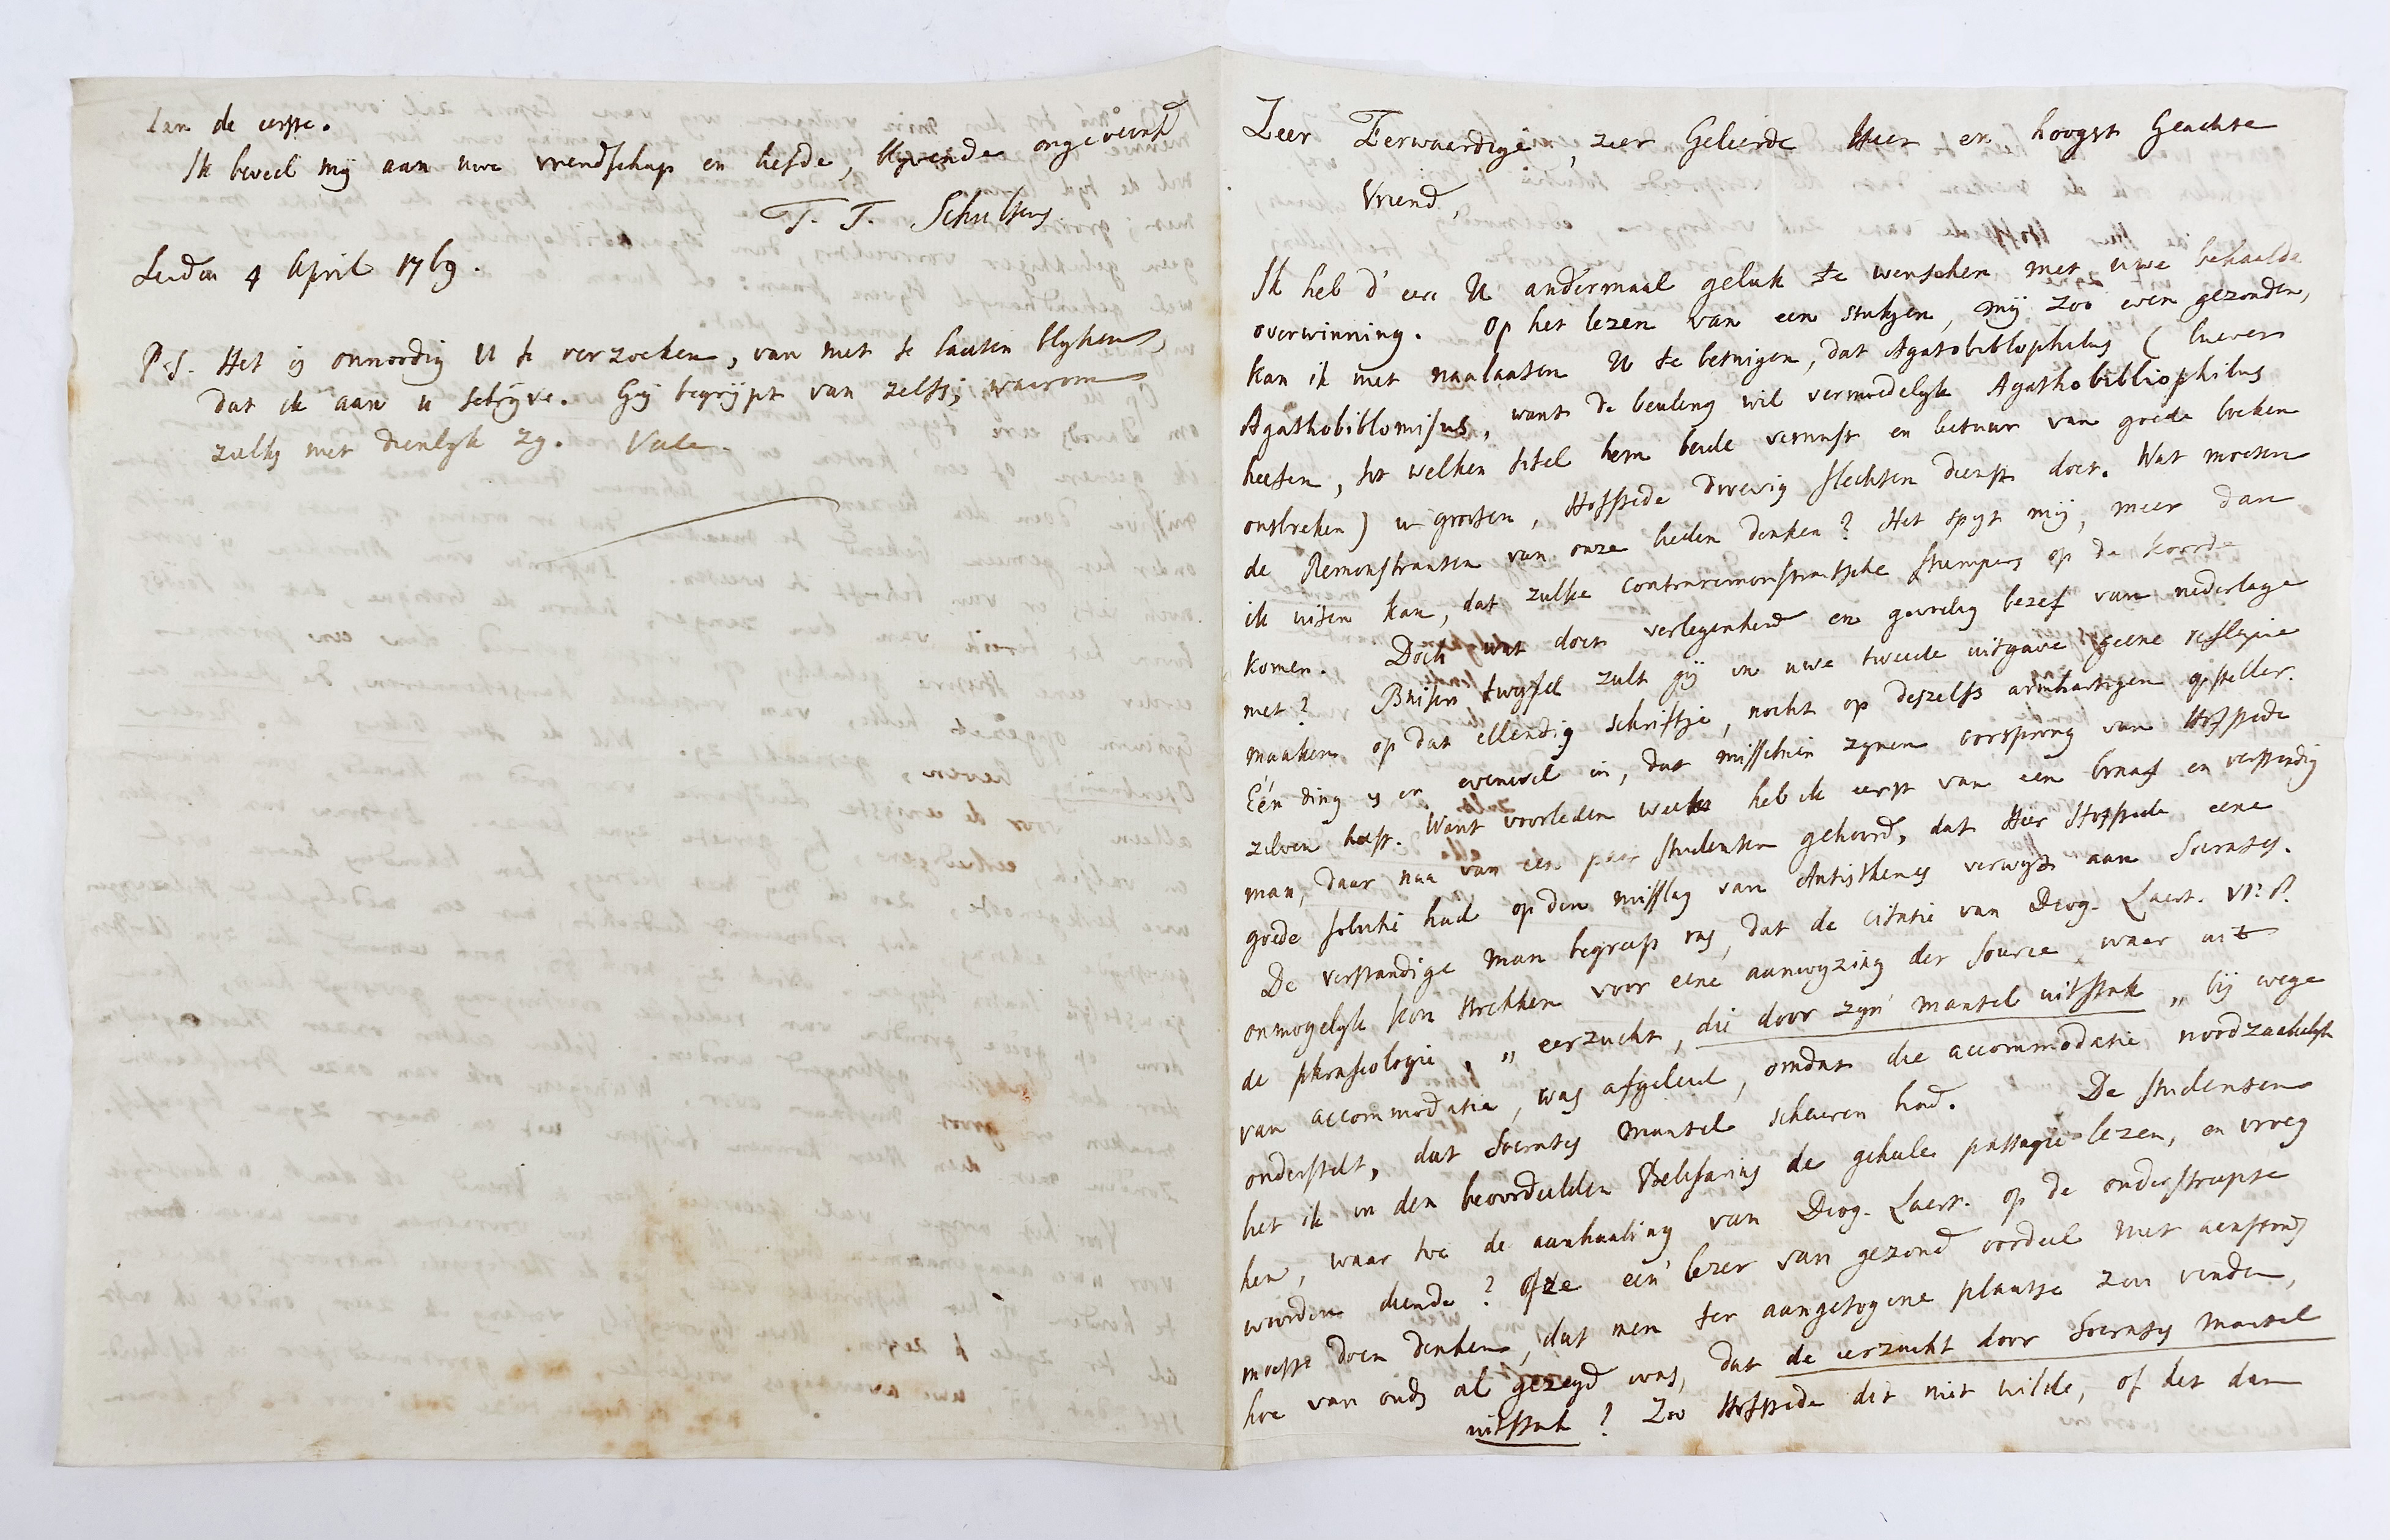 Zeer Eerwaardige, zeer Geleerde Heer en hoogst Geachte
Vriend,
Ik heb d' eer U andermaal geluk te wenschen met uwe behaalde
overwinning. Op het lezen van een stukjen, mij zoo even gezonden,
kan ik niet naalaaten U te betuigen, dat Agatobiblophilus (liever
Agathobiblomisus, want de beuling wil vermoedelyk Agathobibliophilus
heeten, tot welken titel hem beide vernuft en lectuur van goede boeken
ontbreken) u grooten, Hofstede droevig slechten dienst doet. Wat moeten
de Remonstranten van onze lieden denken? Het spyt mij, meer dan
ik uiten kan, dat zulke contraremonstrantsche stumpers op de koorde
komen. Doch wat doet verlegenheid en gevoelig bezef van nederlage
niet? Buiten twyfel zult gij in uwe tweede uitgave geene reflexie
maaken op dat ellendig schriftje, nocht op deszelfs armhartigen opsteller.
Eén ding is er evenwel in, dat misschien zynen oorsprong van Hofstede
zelven heeft. Want voorleden week heb ik eerst van een braaf en verstandig
man, daar naa van een paar studenten gehoord, dat Heer Hofstede eene
goede solutie had op den misslag van Antisthenes verwyt aan Socrates.
De verstandige man begreep ras, dat de citatie van Diog. Laert. VI: 8.
onmogelyk kon strekken voor eene aanwyzing der source waar uit
de phraseologie, „ eerzucht, die door zyn' mantel uitstak „ bij wege
van accommodatie, was afgeleid, omdat die accommodatie noodzaakelyk
onderstelt, dat Socrates mantel scheuren had. De studenten
liet ik in den beoordeelden Belisarius de geheele passagie lezen, en vroeg
hen, waar toe de aanhaaling van Diog. Laert. op de onderstreepte
woorden diende? Of ze een' lezer van gezond oordeel niet aenstonds
moeste doen denken, dat men ter aangetogene plaatse zou vinden,
hoe van ouds al gezegd was, dat de eerzucht door Socrates mantel
uitstak! Zoo Hofstede dit niet wilde, of let dan
aan de eerste.
Ik beveel mij aan uwe vriendschap en liefde, blyvende ongeveinsd
J. J. Schultens
Leiden 4 April 1769.
P.S. Het is onnoodig U te verzoeken, van niet te laaten blyken,
dat ik aan u schryve. Gij begrypt van zelfs, waarom
zulks niet dienlyk zy. Vale.